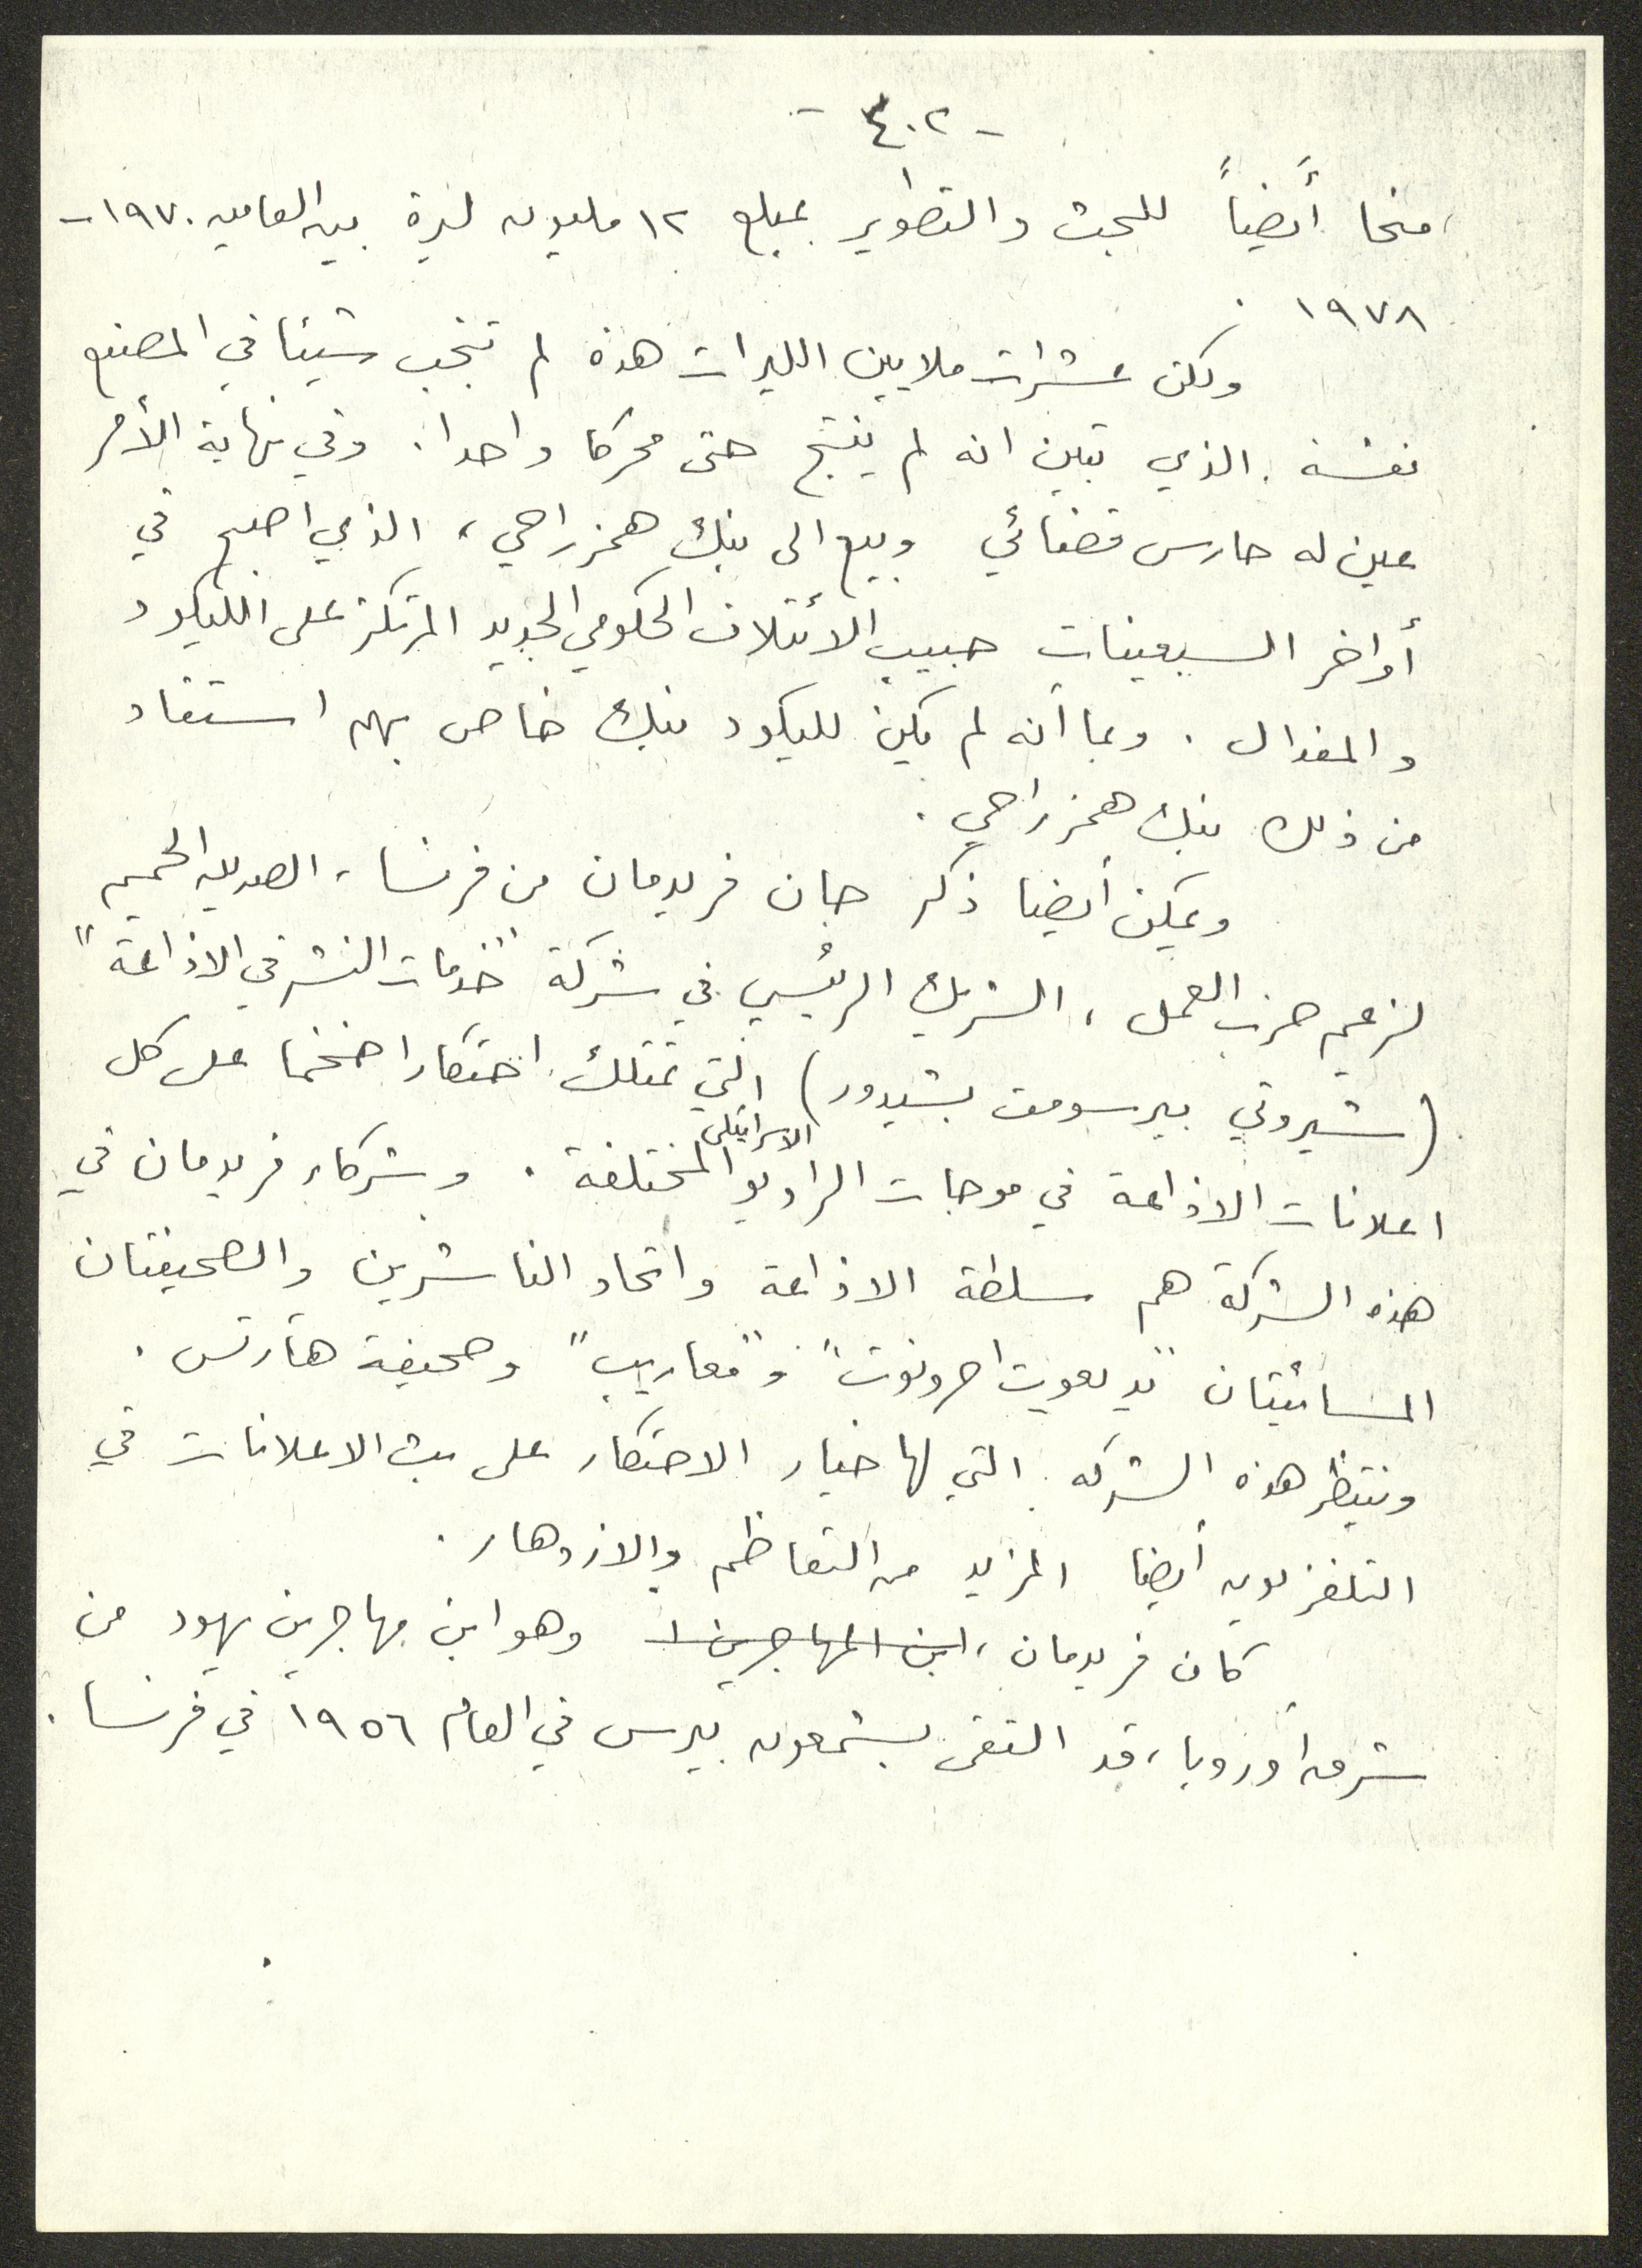 - ٤٠٢ -
منحا أيضاً للبحث والتطوير بمبلغ ١٢ مليون ليرة بين العامين ١٩٧٠-
١٩٧٨ .
ولكن عشرات ملايين الليرات هذه لم تنجب شيئا في المصنع
نفسه . الذي تبين انه لم ينتج حتى محركا واحدا . وفي نهاية الأمر
عين له حارس قضائي وبيع الى بنك همزراحي ، الذي اصبح في
أواخر السبعينات حبيب الائتلاف الحكومي الجديد المرتكز على الليكود
والمفدال . وبما أنه لم يكن لليكود بنك خاص بهم استفاد
من ذلك بنك همزراحي .
ويمكن أيضا ذكر جان فريدمان من فرنسا ، الصديق الحميم
لزعيم حزب العمل ، الشريك الرئيسي في شركة "خدمات النشر في الاذاعة"
(شيروتي بيرسومت بشيدور) التي تمتلك احتكارا ضخما على كل
اعلانات الاذاعة في موجات الراديو الاسرائيلي المختلفة . وشركاء فريدمان في
هذه الشركة هم سلطة الاذاعة واتحاد الناشرين والصحيفتان
المسائيتان "يديعوت احرونوت" و"معاريب" وصحيفة هآرتس .
وننتظر هذه الشركه التي لها خيار الاحتكار على بث الاعلانات في
التلفزيون أيضا المزيد من التعاظم والازدهار .
كان فريدمان ، ابن المهاجرين ا وهو ابن مهاجرين يهود من
شرق أوروبا ، قد التقى بشمعون بيرس في العام ١٩٥٦ في فرنسا .